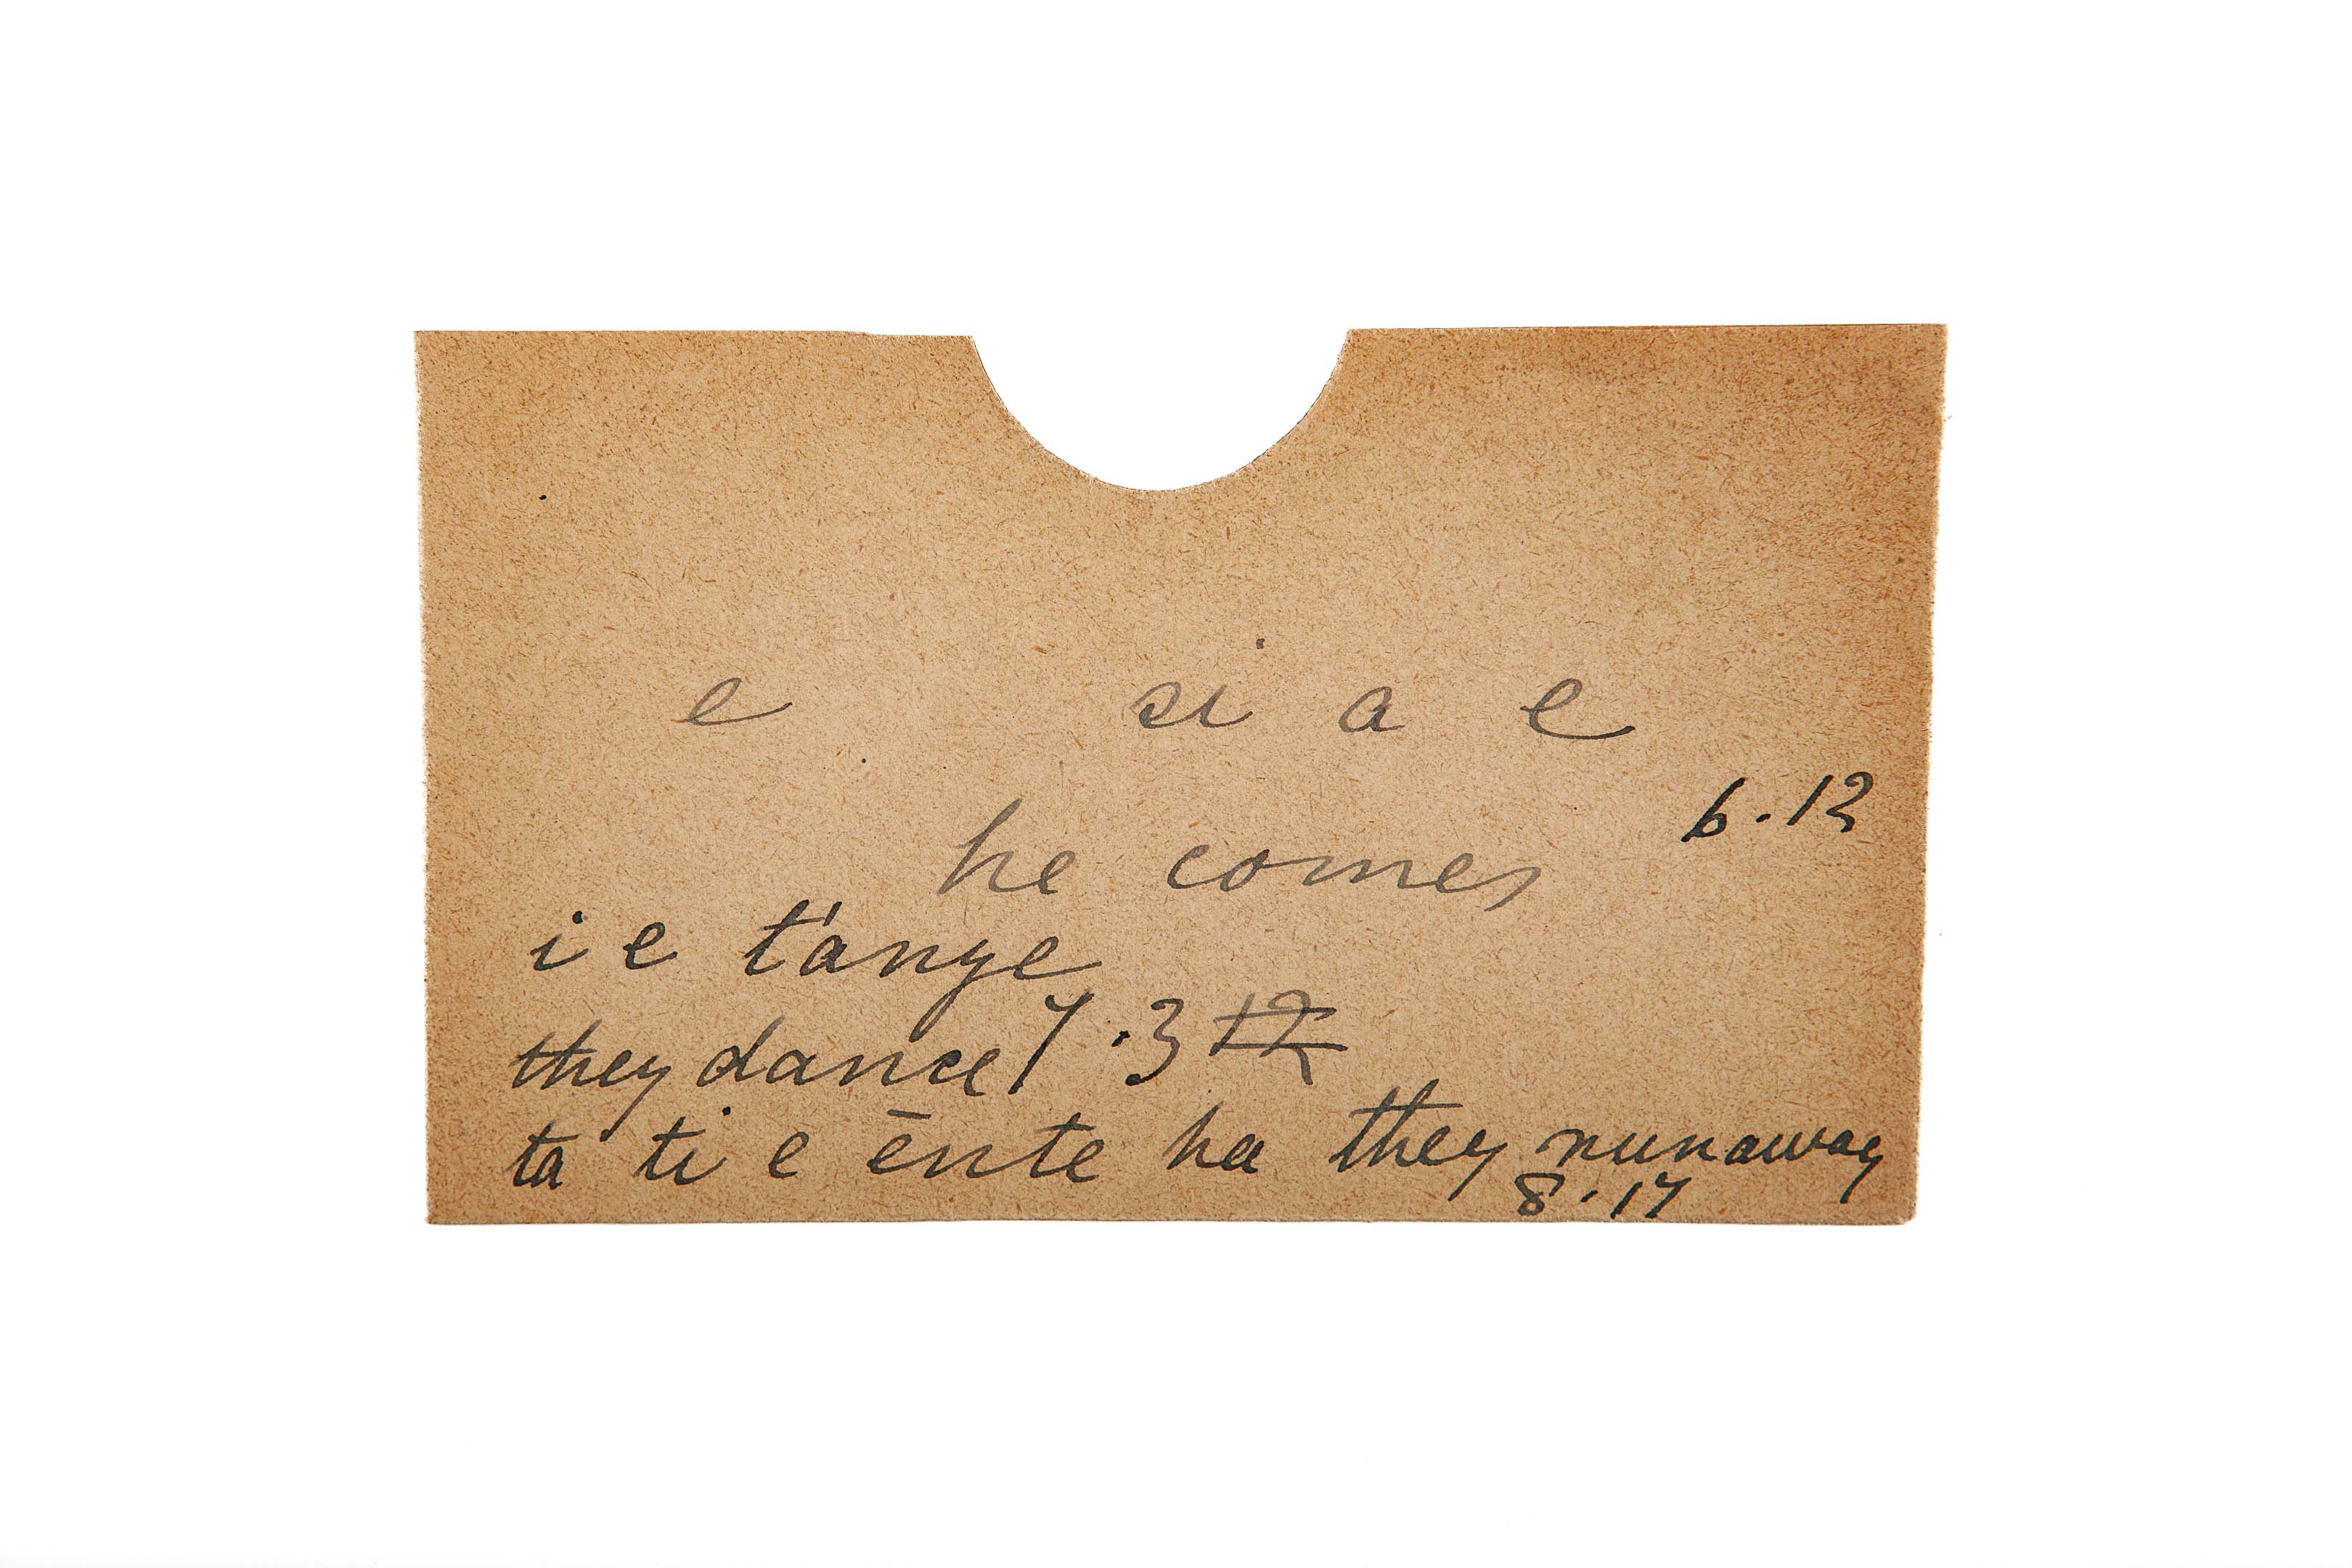 e si a e
6.12
he comes
i e t'anye
they dance 7.3 12
ta ti e ēnte ha they runaway
8.17